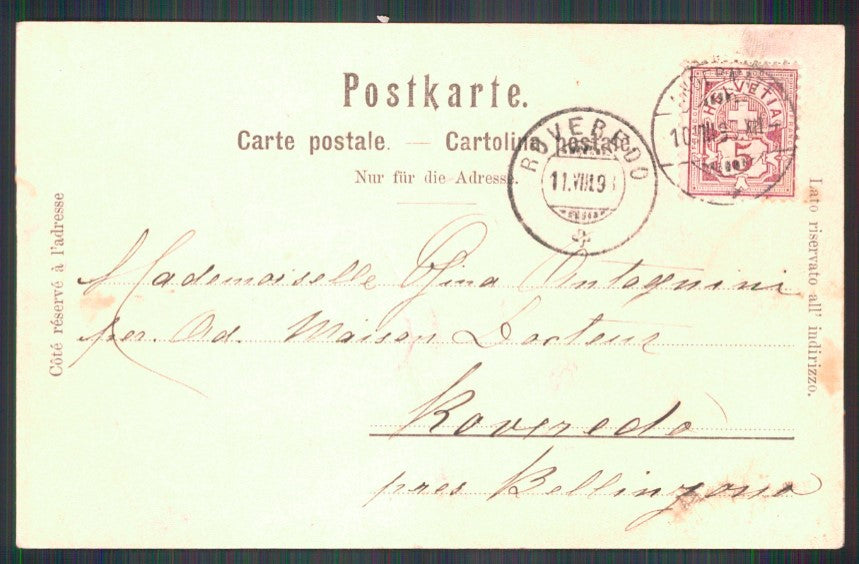 Postkarte.
Carte postale. — Cartolina postale.
Nur für die Adresse.
Côté réservé à l'adresse
Lato riservato all' indirizzo.
ROVEREDO
11.VIII.9
HELVETIA
5
10 VIII 9 XII
Mademoiselle Gina Antognini
per. Ad. Maison Docteur
Roveredo
pres Bellinzona